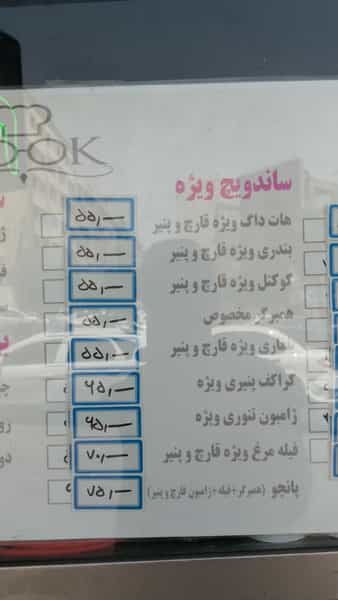 OOK
ساندویچ ویژه
هات داگ ویژه قارچ و پنیر ۵۵,—
بندری ویژه قارچ و پنیر ۵۵,—
کوکتل ویژه قارچ و پنیر ۵۵,—
همبرگر مخصوص ۵۵,—
ویژه قارچ و پنیر ۵۵,—
کراکف پنیری ویژه ۶۵,—
ژامبون تنوری ویژه ۶۵,—
فیله مرغ ویژه قارچ و پنیر ۷۰,—
پانچو (همبرگر+فیله+ژامبون قارچ و پنیر) ۷۵,—